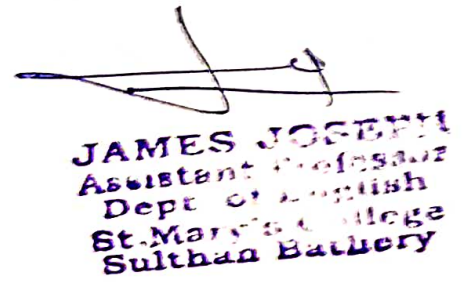 JAMES JOSEPH
Assistant Professor
Dept of English
St.Mary's College
Sulthan Bathery